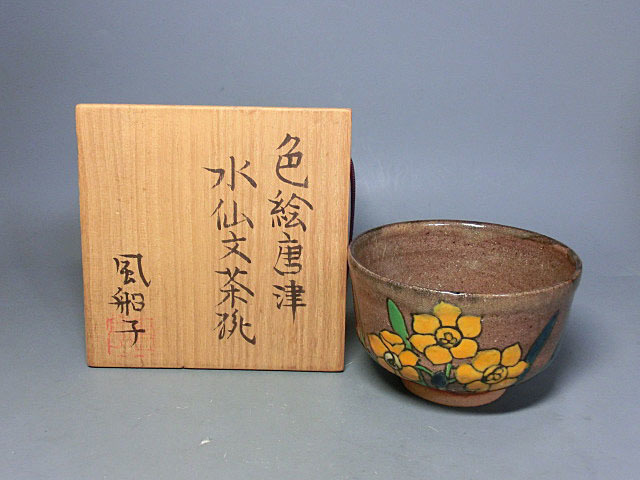 色絵唐津
水仙文茶碗
風船子